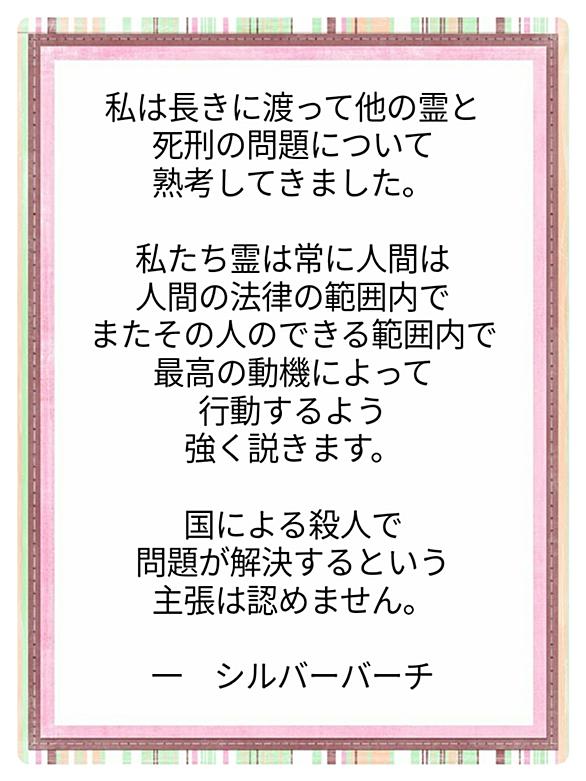 私は長きに渡って他の霊と
死刑の問題について
熟考してきました。
私たち霊は常に人間は
人間の法律の範囲内で
またその人のできる範囲内で
最高の動機によって
行動するよう
強く説きます。
国による殺人で
問題が解決するという
主張は認めません。
ー　シルバーバーチ